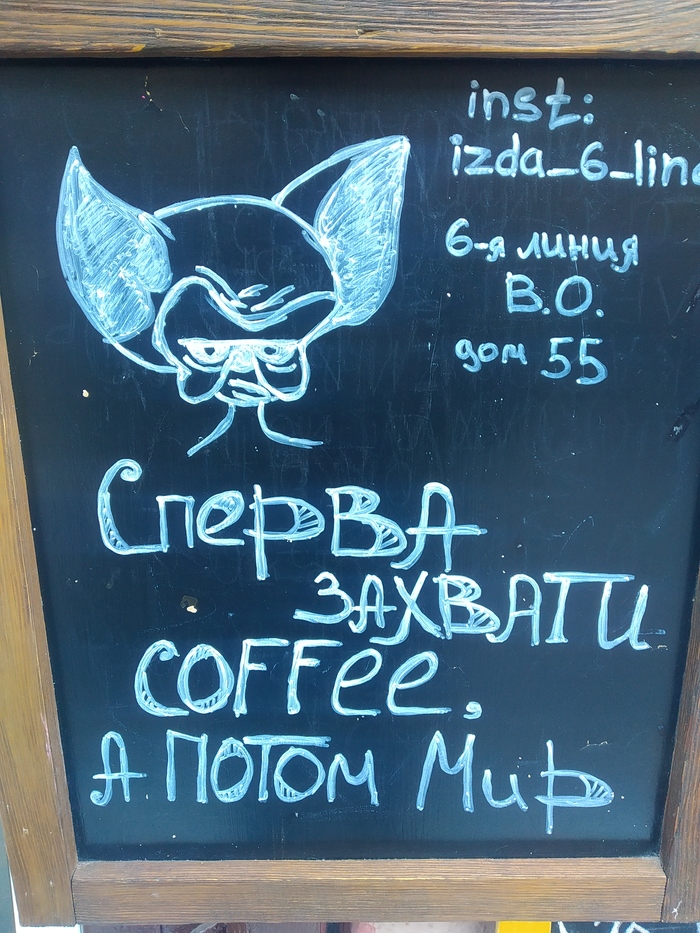 inst:
izda_6_line
6-я линия
В.О.
дом 55
Сперва
захвати
coffee,
а потом Мир